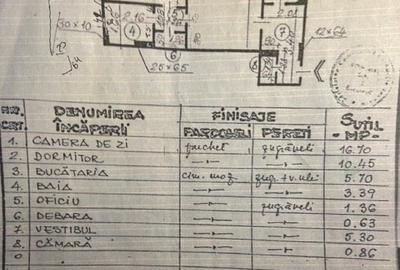 30×10
2.16
4
6
25×65
7
12×64
64
NR. CRT.
DENUMIREA ÎNCĂPERII
FINISAJE
PARDOSELI
PEREȚI
SUTIL -MP.-
1. CAMERA DE ZI parchet zugrăveli 16.70
2. DORMITOR —〃— —〃— 10.45
3. BUCĂTARIA cim. moz zugr.+v.ulei 5.70
4. BAIA —〃— —〃— 3.39
5. OFICIU —〃— zugrăveli 1.36
6. DEBARA —〃— —〃— 0.63
7. VESTIBUL —〃— —〃— 5.30
8. CĂMARĂ —〃— —〃— 0.86